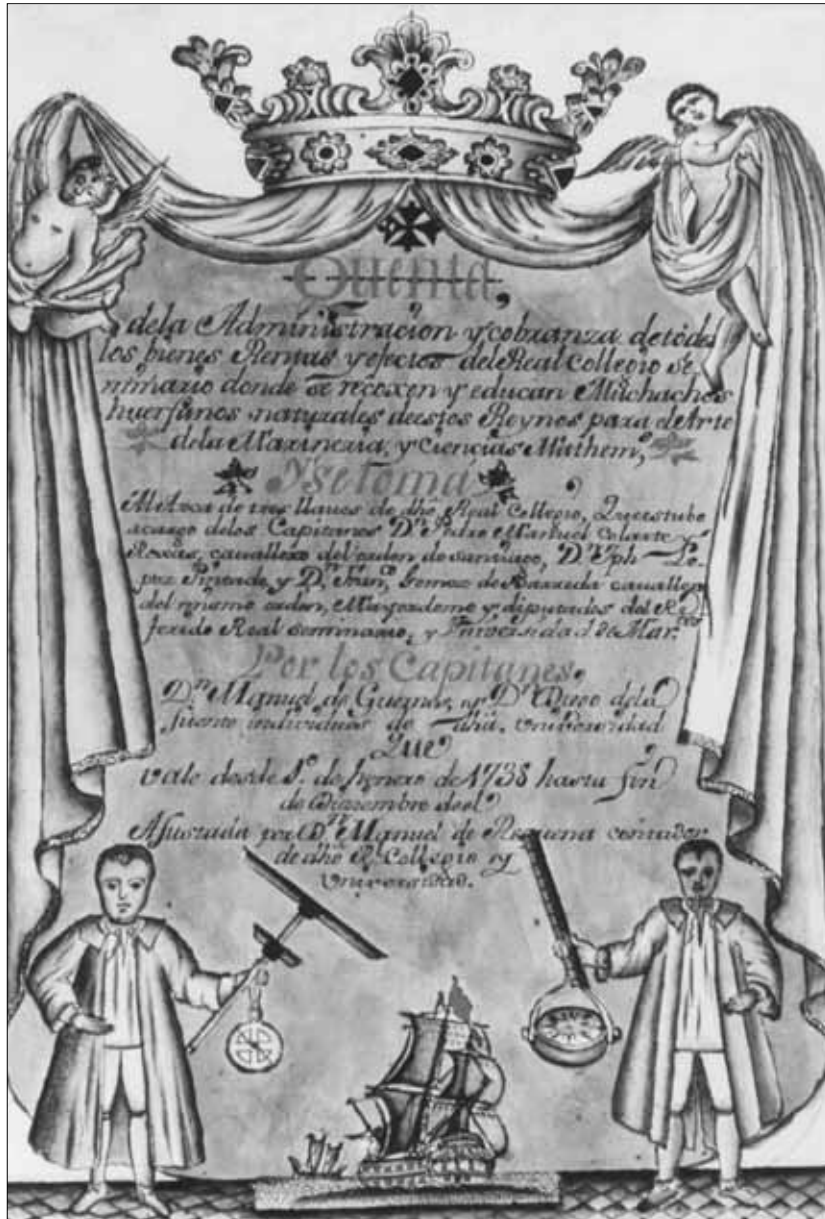 Quenta,
de la Administracion y cobranza de todos
los bienes Rentas y efectos del Real Collegio Se-
minario donde se recoxen y educan Muchachos
huerfanos naturales de estos Reynos para el Arte
de la Marineria, y Ciencias Mathem,
Y se Tomá
Al Arca de tres llaves de dho Real Collegio, Que estubo
acargo delos Capitanes Dn Pedro Manuel Colarte y
Roxas, cavallero del orden de santiago, Dn Jph Lo-
pez Pintado, y Dn Fran,co Gomez de Barreda cavallero
del mismo orden, Mayordomo y diputados del Re-
ferido Real seminario, y Universidad de Mar.tes
Por los Capitanes,
Dn Manuel de y Dn Diego de la
fuente individuos de dha, Universidad
Que
vale desde 1º de henero de 1738 hasta fin
de Diziembre de el
Ajustada por Dn Manuel de Requena contador
de dho Rl Collegio y
Universidad.